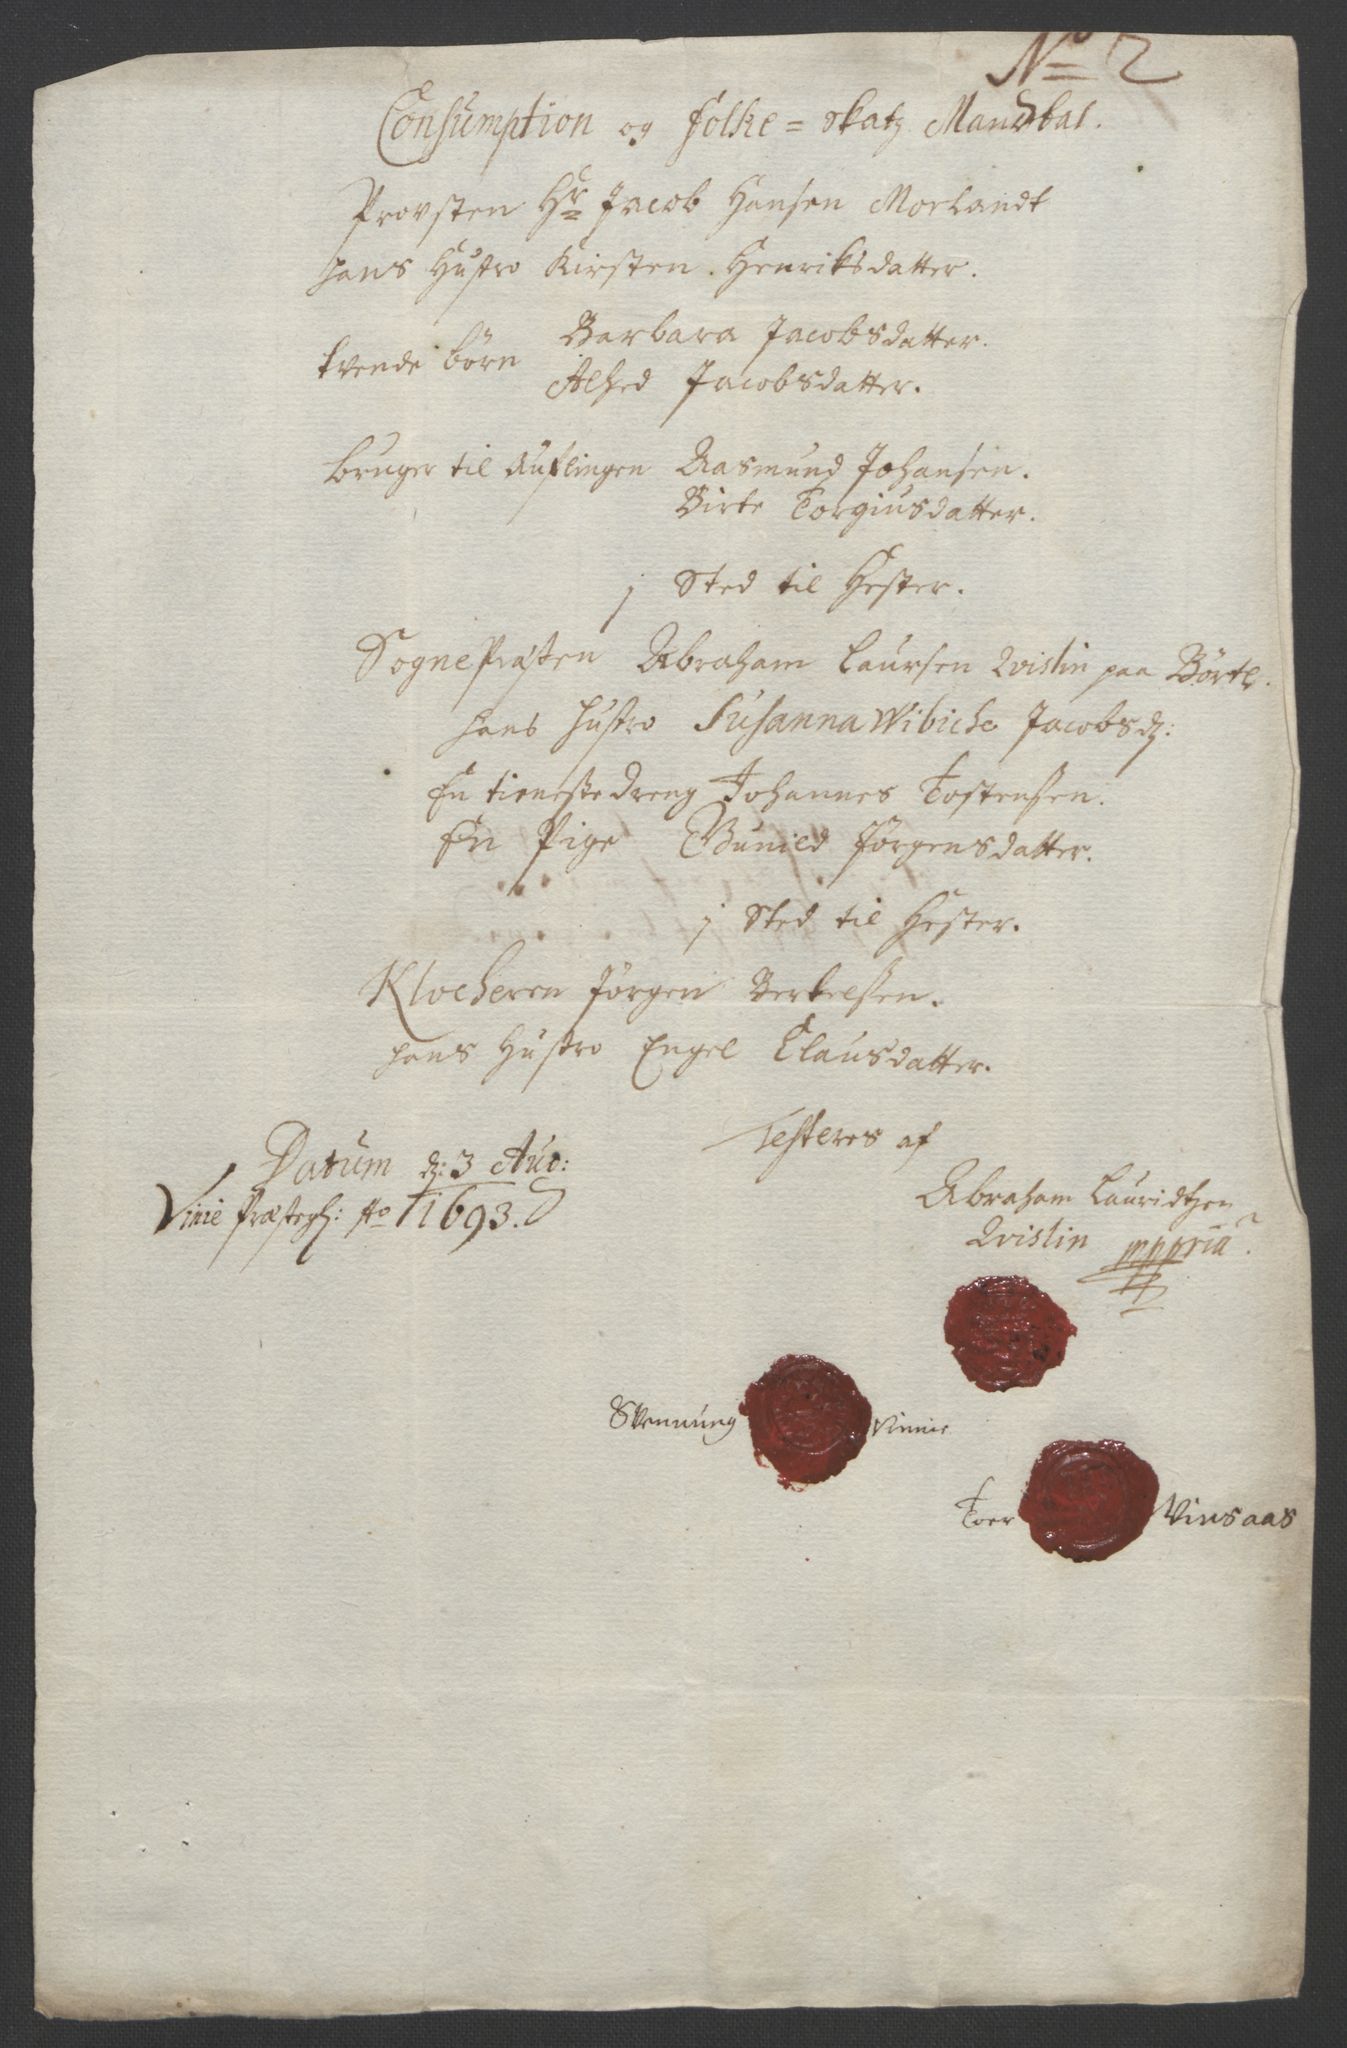 No 2
Consumption og folke = skatz Mandtal.
Provsten Hr Jacob Hansen Morlandt
hans Hustro Kirsten Henriksdatter.
tvende börn Barbara Jacobsdatter.
Alhed Jacobsdatter.
bruger til Auflingen Aasmund Johansen.
Birte Torgiusdatter.
j Sted til Hester.
Sognepræsten Abraham Laursen Qvislin paa Börte.
hans hustro Susanna Wibiche Jacobsd:
En tieneste dreng Johannes Tostensen.
En Pige Gunild Jörgensdatter.
j Sted til Hester.
Klocheren Jörgen Berkelsen.
hans Hustro Engel Clausdatter.
Testeres af
Datum d: 3 Aug:
Vinie Præstegh: Ao 1693.
Abraham Lauridtzen
Qvislin mppria
Svennung Vinnie
Toer Vinsaas